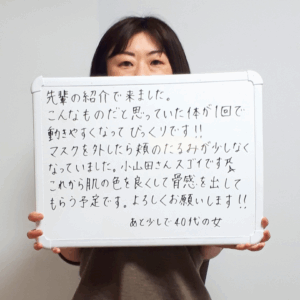 先輩の紹介で来ました。
こんなものだと思っていた体が1回で
動きやすくなってびっくりです!!
マスクを外したら頬のたるみが少しなく
なっていました。小山田さんスゴイです
これから肌の色を良くして骨感を出して
もらう予定です。よろしくお願いします!!
あと少しで40代の女